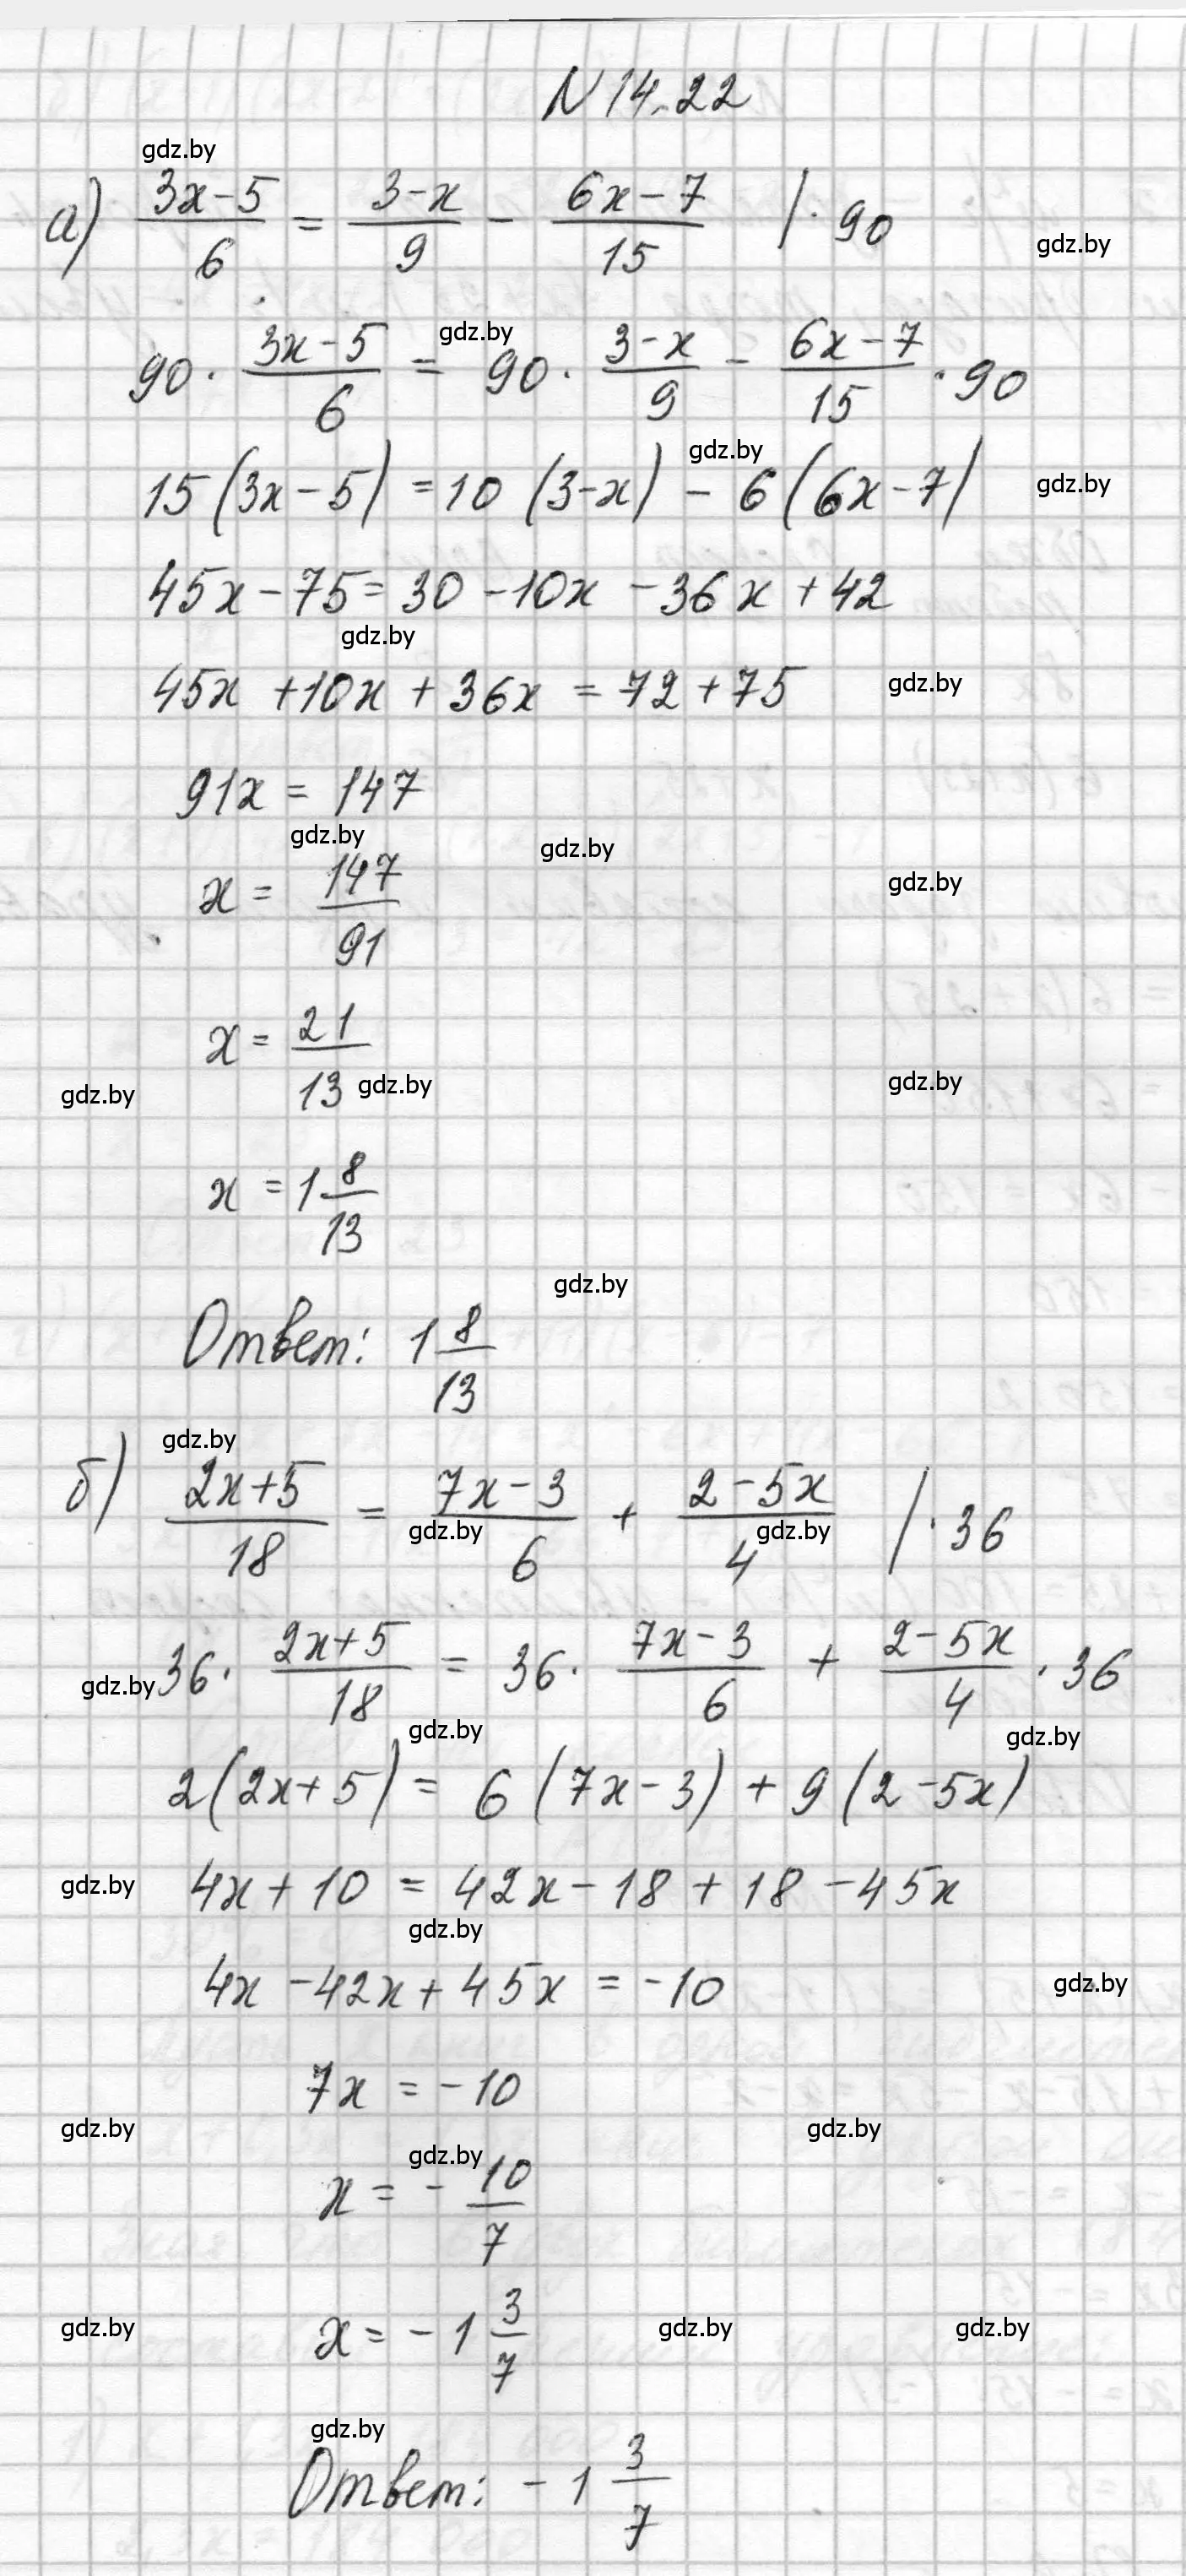 N 14.22
gdz.by
а) (3x-5)/6 = (3-x)/9 - (6x-7)/15 | · 90
gdz.by
gdz.by
90 · (3x-5)/6 = 90 · (3-x)/9 - (6x-7)/15 · 90
gdz.by
15(3x-5) = 10(3-x) - 6(6x-7)
gdz.by
45x - 75 = 30 - 10x - 36x + 42
gdz.by
45x + 10x + 36x = 72 + 75
gdz.by
91x = 147
gdz.by gdz.by
x = 147/91
gdz.by
x = 21/13
gdz.by gdz.by gdz.by
x = 1 8/13
gdz.by
Ответ: 1 8/13
gdz.by
б) (2x+5)/18 = (7x-3)/6 + (2-5x)/4 | · 36
gdz.by gdz.by
36 · (2x+5)/18 = 36 · (7x-3)/6 + (2-5x)/4 · 36
gdz.by
gdz.by gdz.by
2(2x+5) = 6(7x-3) + 9(2-5x)
gdz.by
4x + 10 = 42x - 18 + 18 - 45x
gdz.by
4x - 42x + 45x = -10
gdz.by
7x = -10
gdz.by gdz.by
gdz.by
x = - 10/7
x = -1 3/7
gdz.by gdz.by gdz.by
gdz.by
Ответ: -1 3/7